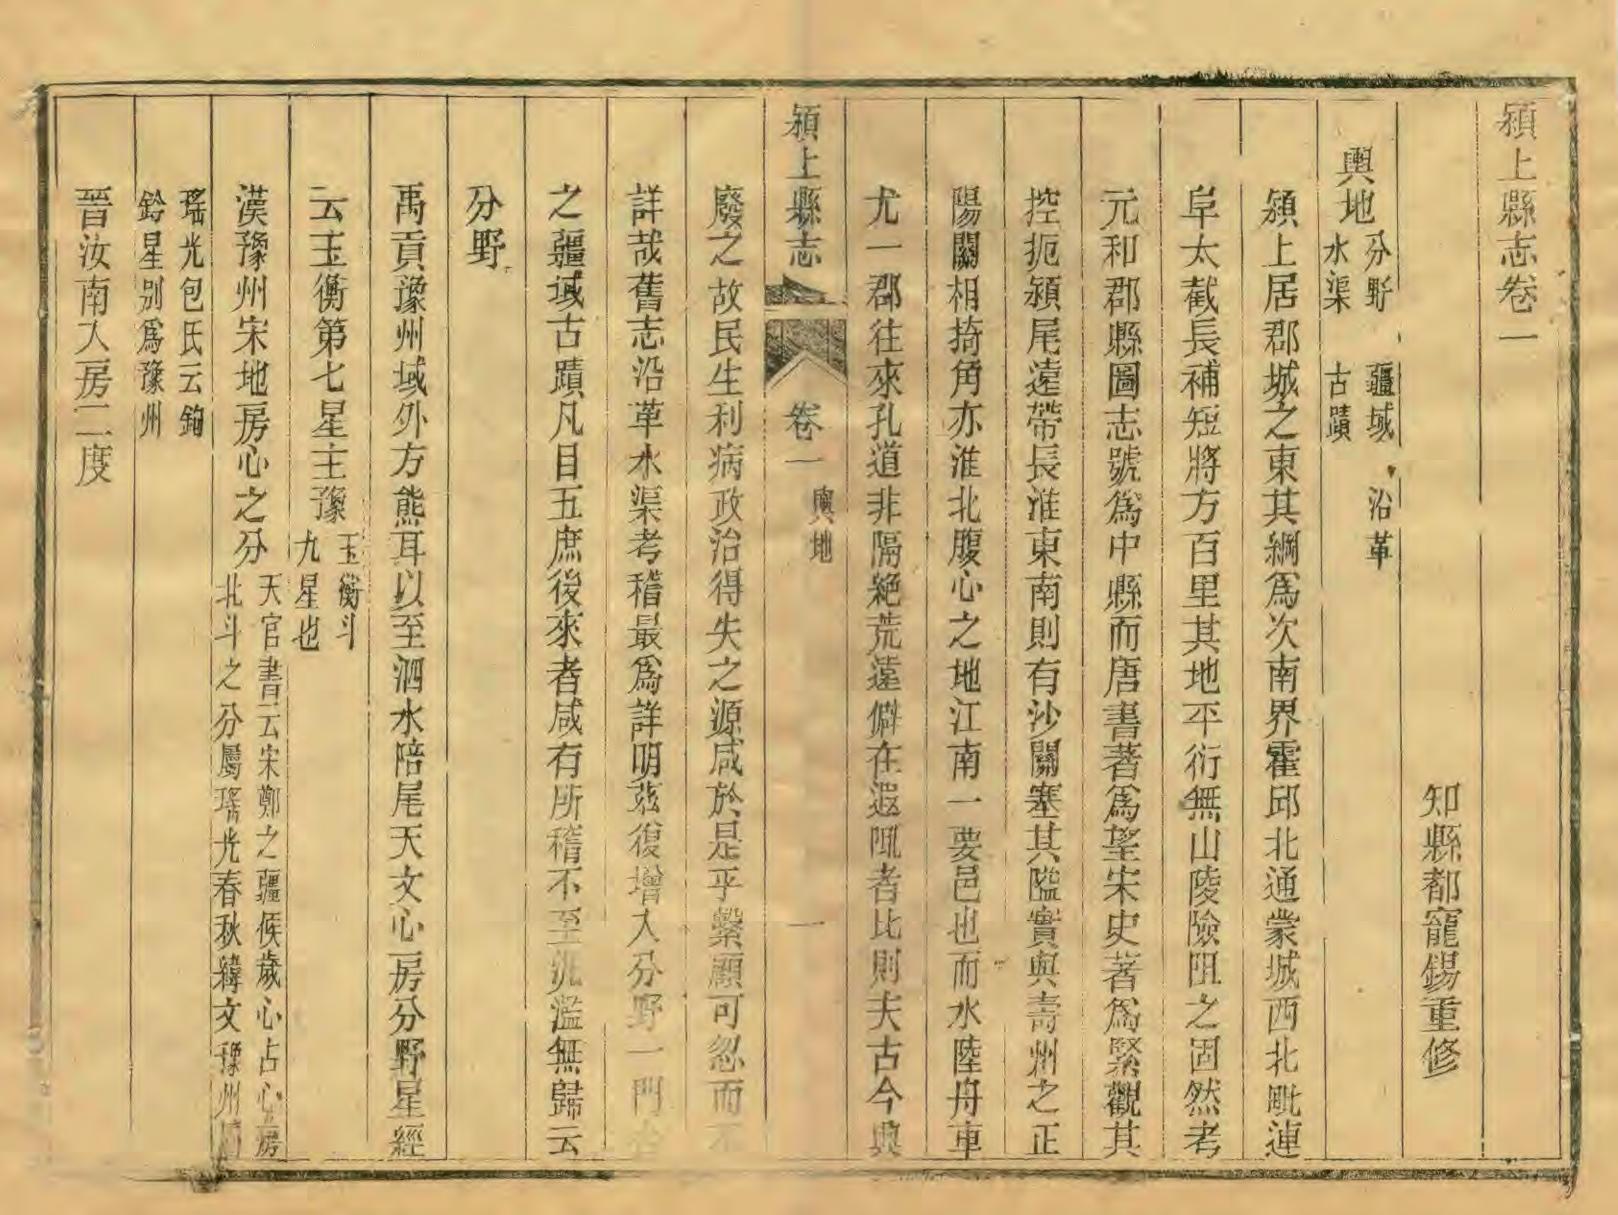 潁上縣志卷一
知縣都寵錫重修
輿地 分野 疆域 沿革 水渠 古蹟
潁上居郡城之東其綱爲次南界霍邱北通蒙城西北毗連
阜太截長補短將方百里其地平衍無山陵險阻之固然考
元和郡縣圖志號爲中縣而唐書著爲望宋史著爲緊觀其
控扼潁尾遠帶長淮東南則有沙關塞其隘實與壽州之正
陽關相掎角亦淮北腹心之地江南一要邑也而水陸舟車
尤一郡往來孔道非隔絶荒遠僻在遐陬者比則夫古今興
潁上縣志 卷一 輿地 一
廢之故民生利病政治得失之源咸於是乎繫顧可忽而不
詳哉舊志沿革水渠考稽最爲詳明茲復增入分野一門
之疆域古蹟凡目五庶後來者咸有所稽不至氾濫無歸云
分野
禹貢豫州域外方熊耳以至泗水陪尾天文心房分野星經
云玉衡第七星主豫 玉衡斗九星也
漢豫州宋地房心之分 天官書云宋鄭之疆候歲心占心房北斗之分屬瑤光春秋緯文豫州屬
瑤光包氏云鉤鈐星別爲豫州
晉汝南入房二度